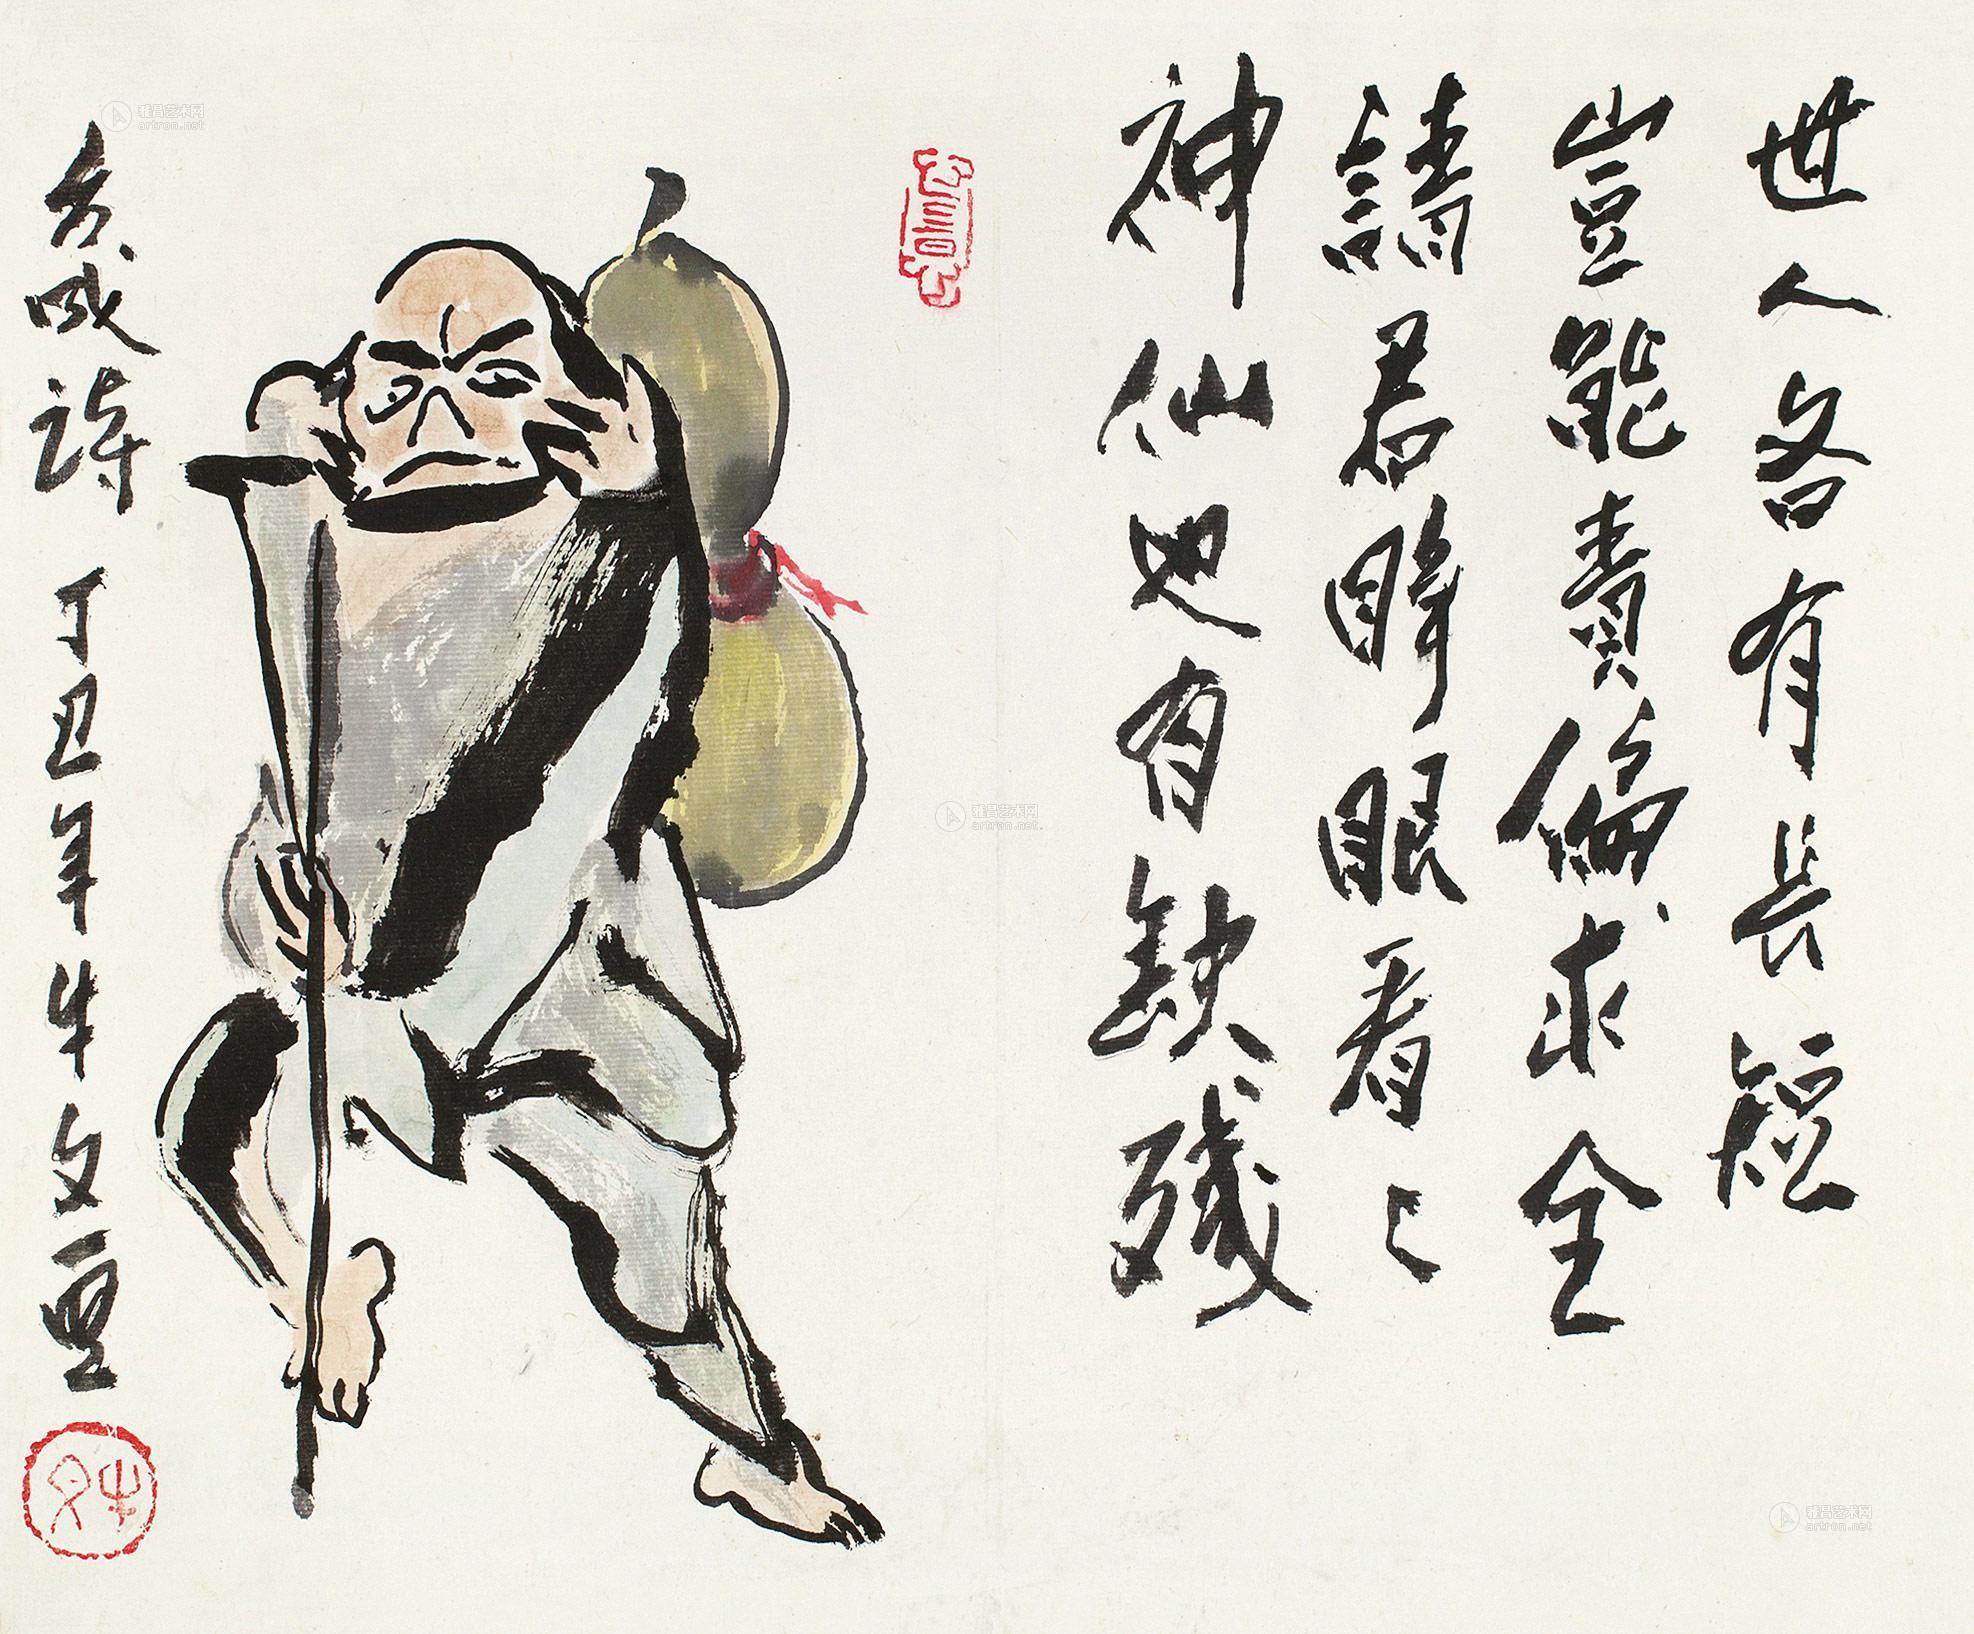 世人各有長短
豈能責備求全
請君睁眼看〻
神仙也有缺殘
方成诗 丁丑年牛文画
牛文
雅昌艺术网
artron.net
雅昌艺术网
artron.net
雅昌艺术网
artron.net